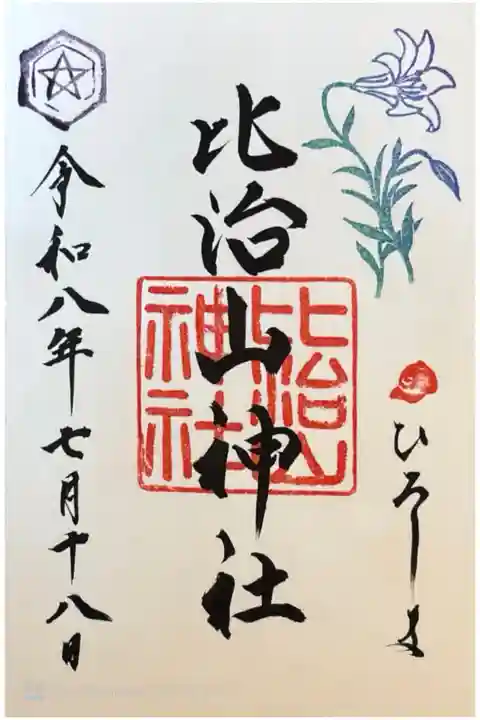 ひろしま
比治山神社
比治山神社
令和八年七月十八日